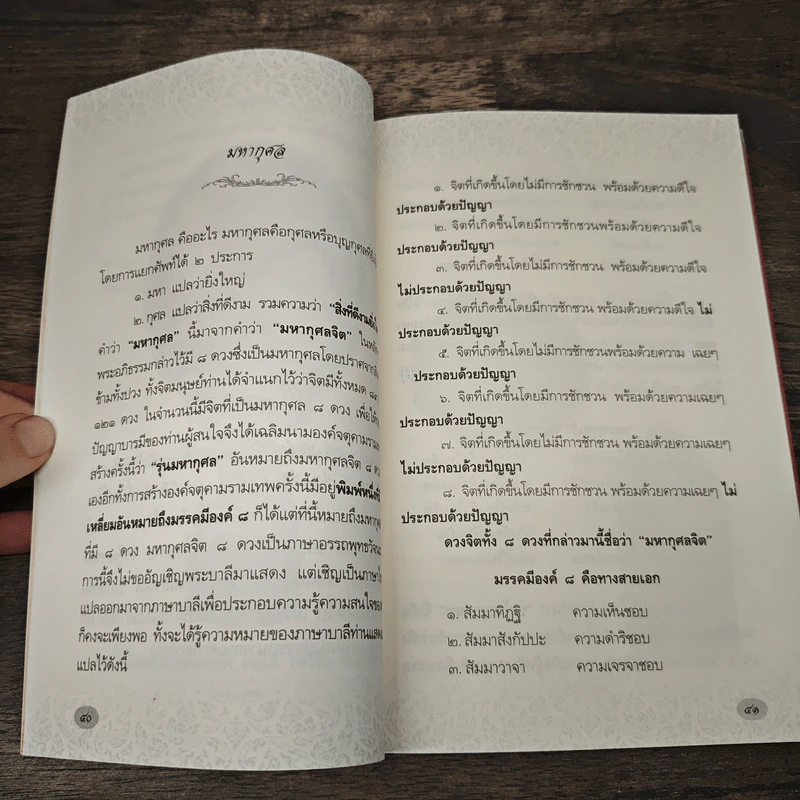 มหากุศล
มหากุศล คืออะไร มหากุศลคือกุศลหรือบุญกุศลที่
โดยการแยกศัพท์ได้ ๒ ประการ
๑. มหา แปลว่ายิ่งใหญ่
๒. กุศล แปลว่าสิ่งที่ดีงาม รวมความว่า "สิ่งที่ดีงาม
คำว่า "มหากุศล" นี้มาจากคำว่า "มหากุศลจิต" ในหลัก
พระอภิธรรมกล่าวไว้มี ๘ ดวงซึ่งเป็นมหากุศลโดยปราศจาก
ข้ามทั้งปวง ทั้งจิตมนุษย์ท่านได้จำแนกไว้ว่าจิตมีทั้งหมด ๘๙
๑๒๑ ดวง ในจำนวนนี้มีจิตที่เป็นมหากุศล ๘ ดวง เพื่อให้
ปัญญาบารมีของท่านผู้สนใจจึงได้เฉลิมนามองค์จตุคามราม
สร้างครั้งนี้ว่า "รุ่นมหากุศล" อันหมายถึงมหากุศลจิต ๘ ดวง
เองอีกทั้งการสร้างองค์จตุคามรามเทพครั้งนี้มีอยู่พิมพ์หนึ่ง
เหลี่ยมอันหมายถึงมรรคมีองค์ ๘ ก็ได้แต่ที่นี้หมายถึงมหากุศล
ที่มี ๘ ดวง มหากุศลจิต ๘ ดวงเป็นภาษาอรรถพุทธวัจนะ
การนี้จึงไม่ขออัญเชิญพระบาลีมาแสดง แต่เชิญเป็นภาษา
แปลออกมาจากภาษาบาลีเพื่อประกอบความรู้ความสนใจของ
ก็คงจะเพียงพอ ทั้งจะได้รู้ความหมายของภาษาบาลีท่านแสดง
แปลไว้ดังนี้
๔๐
๑. จิตที่เกิดขึ้นโดยไม่มีการชักชวน พร้อมด้วยความดีใจ
ประกอบด้วยปัญญา
๒. จิตที่เกิดขึ้นโดยมีการชักชวนพร้อมด้วยความดีใจ
ประกอบด้วยปัญญา
๓. จิตที่เกิดขึ้นโดยไม่มีการชักชวน พร้อมด้วยความดีใจ
ไม่ประกอบด้วยปัญญา
๔. จิตที่เกิดขึ้นโดยมีการชักชวน พร้อมด้วยความดีใจ ไม่
ประกอบด้วยปัญญา
๕. จิตที่เกิดขึ้นโดยไม่มีการชักชวนพร้อมด้วยความ เฉยๆ
ประกอบด้วยปัญญา
๖. จิตที่เกิดขึ้นโดยมีการชักชวน พร้อมด้วยความเฉยๆ
ประกอบด้วยปัญญา
๗. จิตที่เกิดขึ้นโดยไม่มีการชักชวน พร้อมด้วยความเฉยๆ
ไม่ประกอบด้วยปัญญา
๘. จิตที่เกิดขึ้นโดยมีการชักชวน พร้อมด้วยความเฉยๆ ไม่
ประกอบด้วยปัญญา
ดวงจิตทั้ง ๘ ดวงที่กล่าวมานี้ชื่อว่า "มหากุศลจิต"
มรรคมีองค์ ๘ คือทางสายเอก
๑. สัมมาทิฏฐิ ความเห็นชอบ
๒. สัมมาสังกัปปะ ความดำริชอบ
๓. สัมมาวาจา ความเจรจาชอบ
๔๑